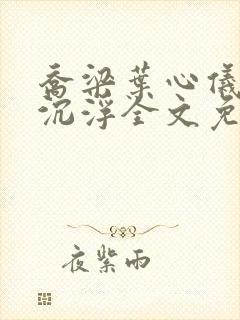 乔梁叶心仪
沉浮全文免
夜紫雨